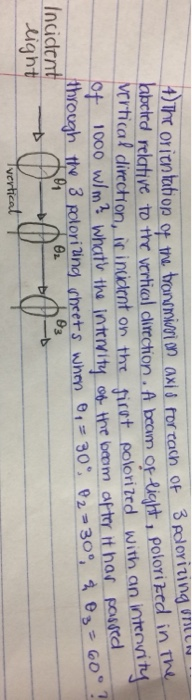 1) The orientation of the transmission axis for each of 3 polarizing
labeled relative to the vertical direction. A beam of light, polorized in the
vertical direction, is incident on the first polorized with an intensity
of 1000 W/m². What's the intensity of the beam after it has passed
through the 3 polarizing sheets when θ₁ = 30°, θ₂ = 30°, & θ₃ = 60°?
θ₁ θ₂ θ₃
Incident
light
vertical